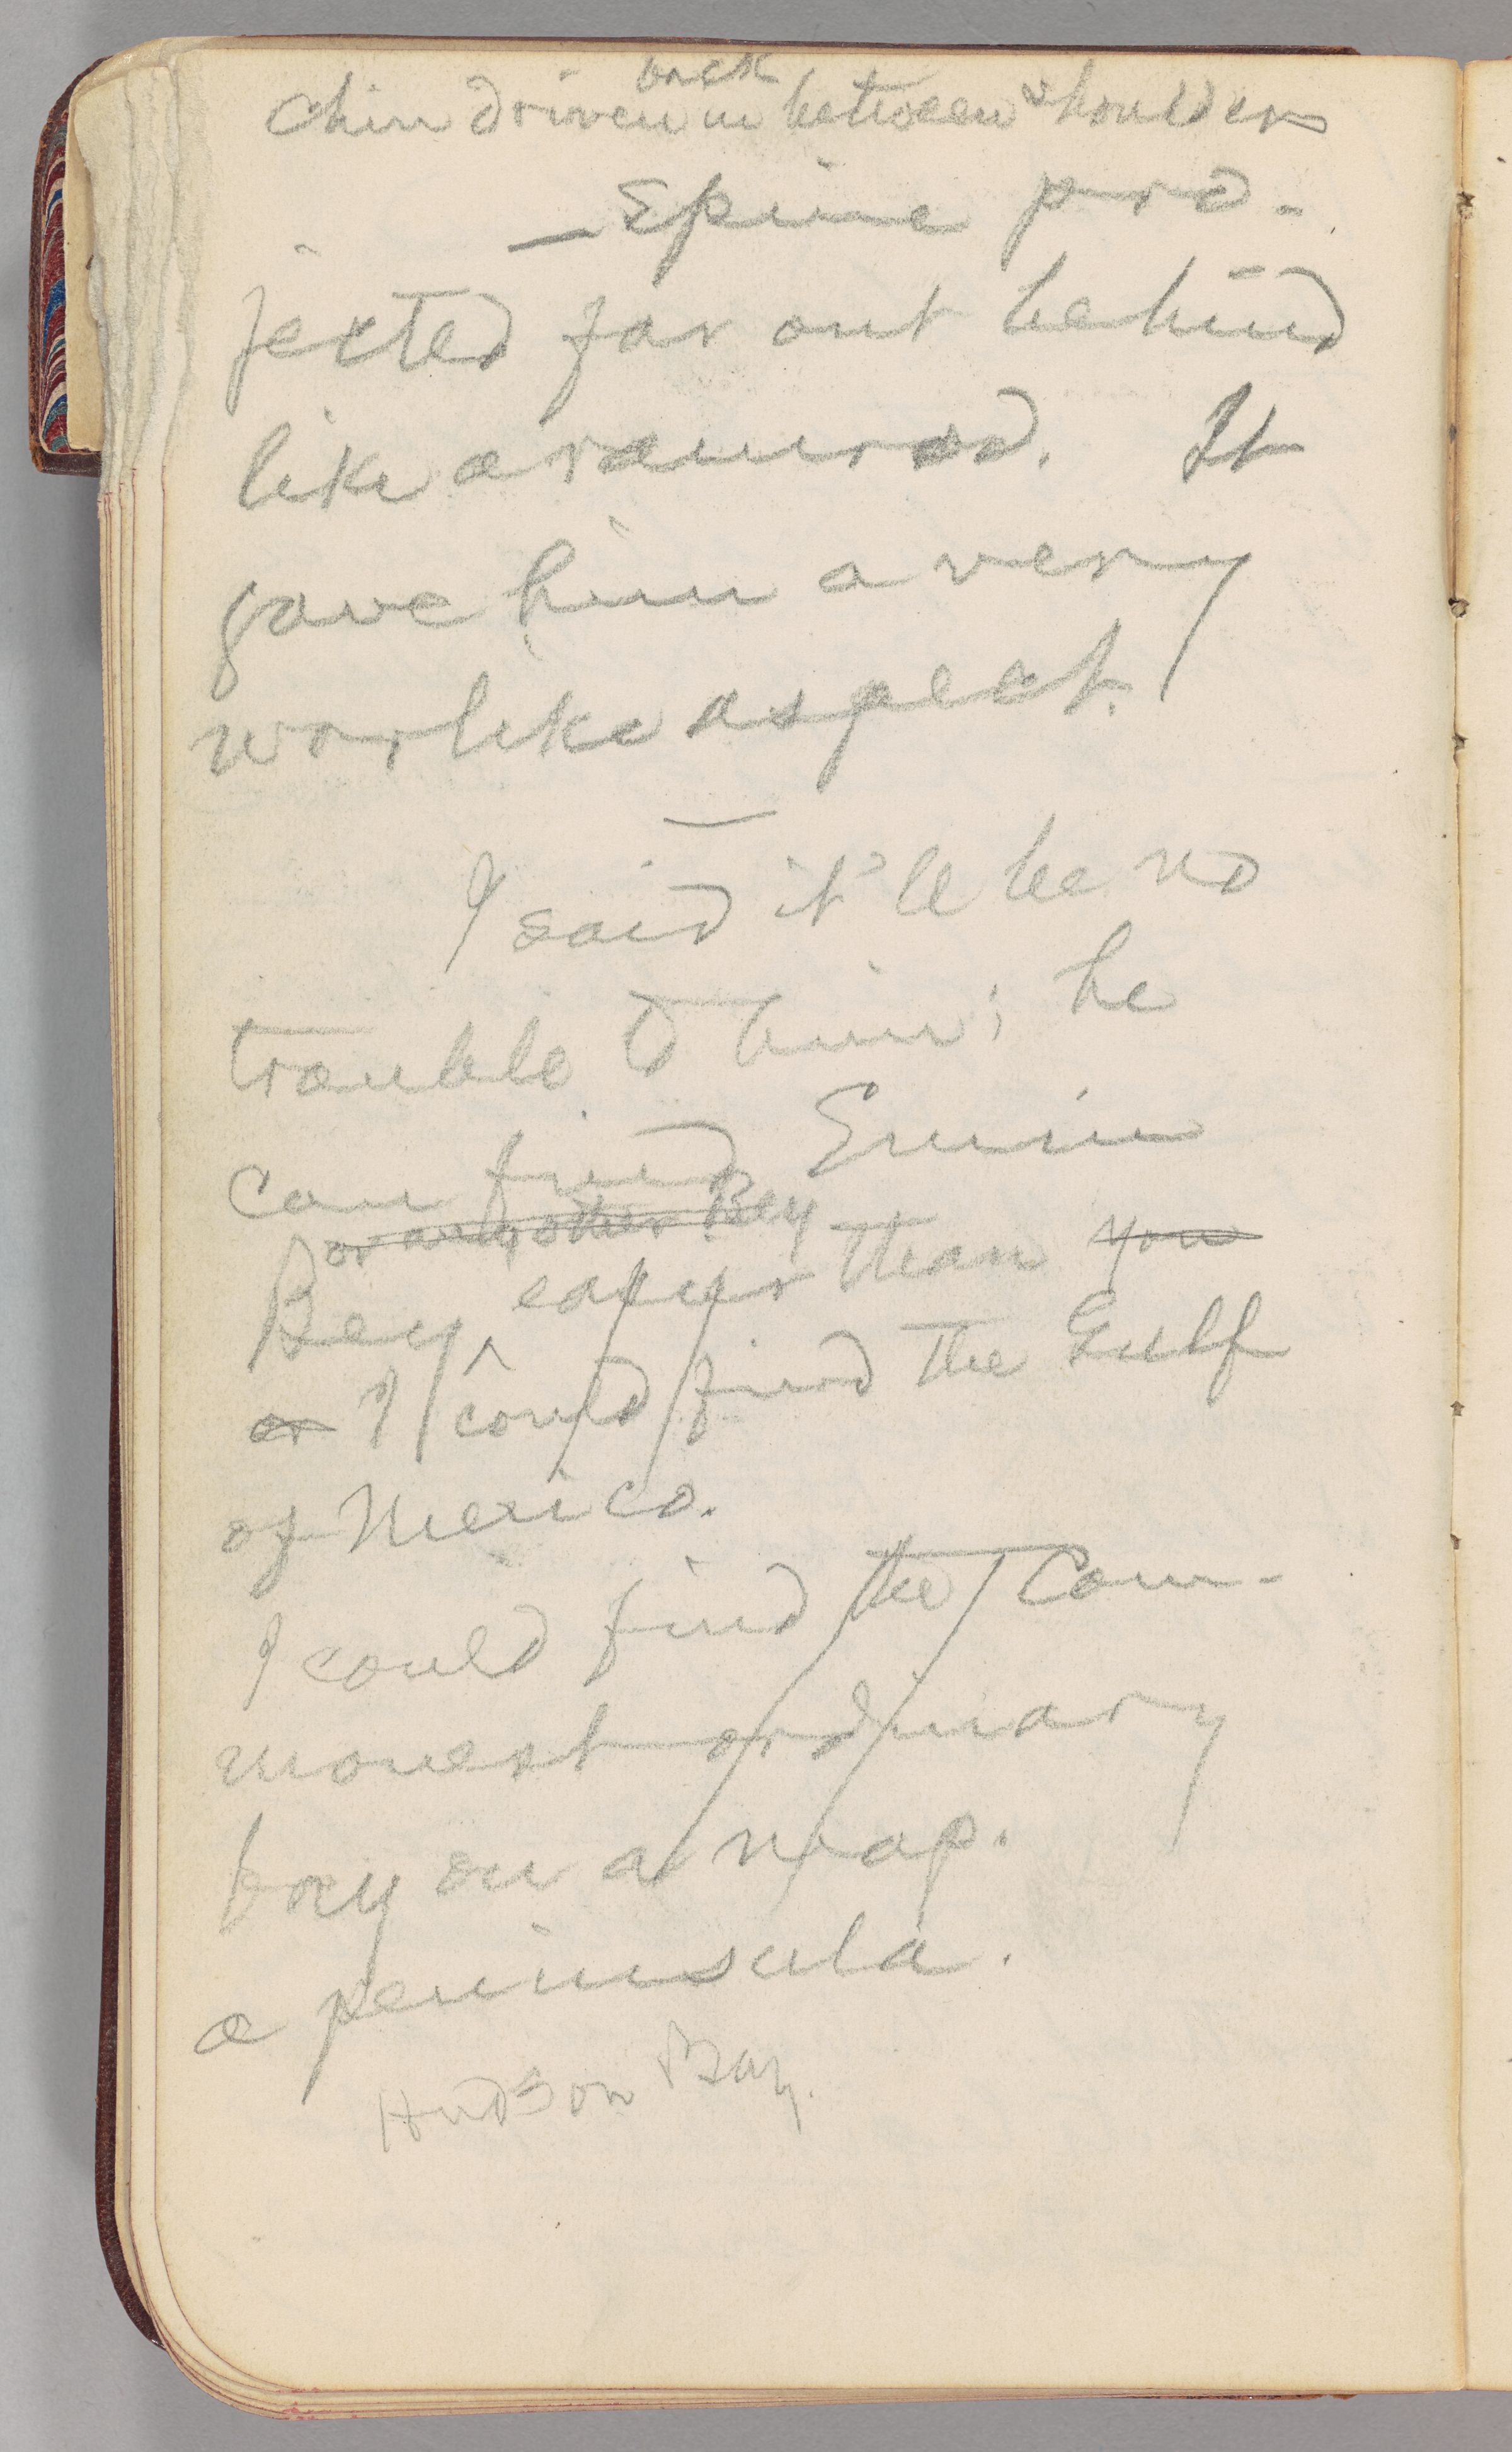 back
chin driven in between shoulders
— Spine pro-
jected far out behind
like a ramrod. It
gave him a very
warlike aspect.
I said it'll be no
trouble to him; he
can find Emin
or any other Bey
Bey, easier than you
or I could find the Gulf
of Mexico.
I could find the com-
monest ordinary
bay on a map.
a peninsula.
Hudson Bay.